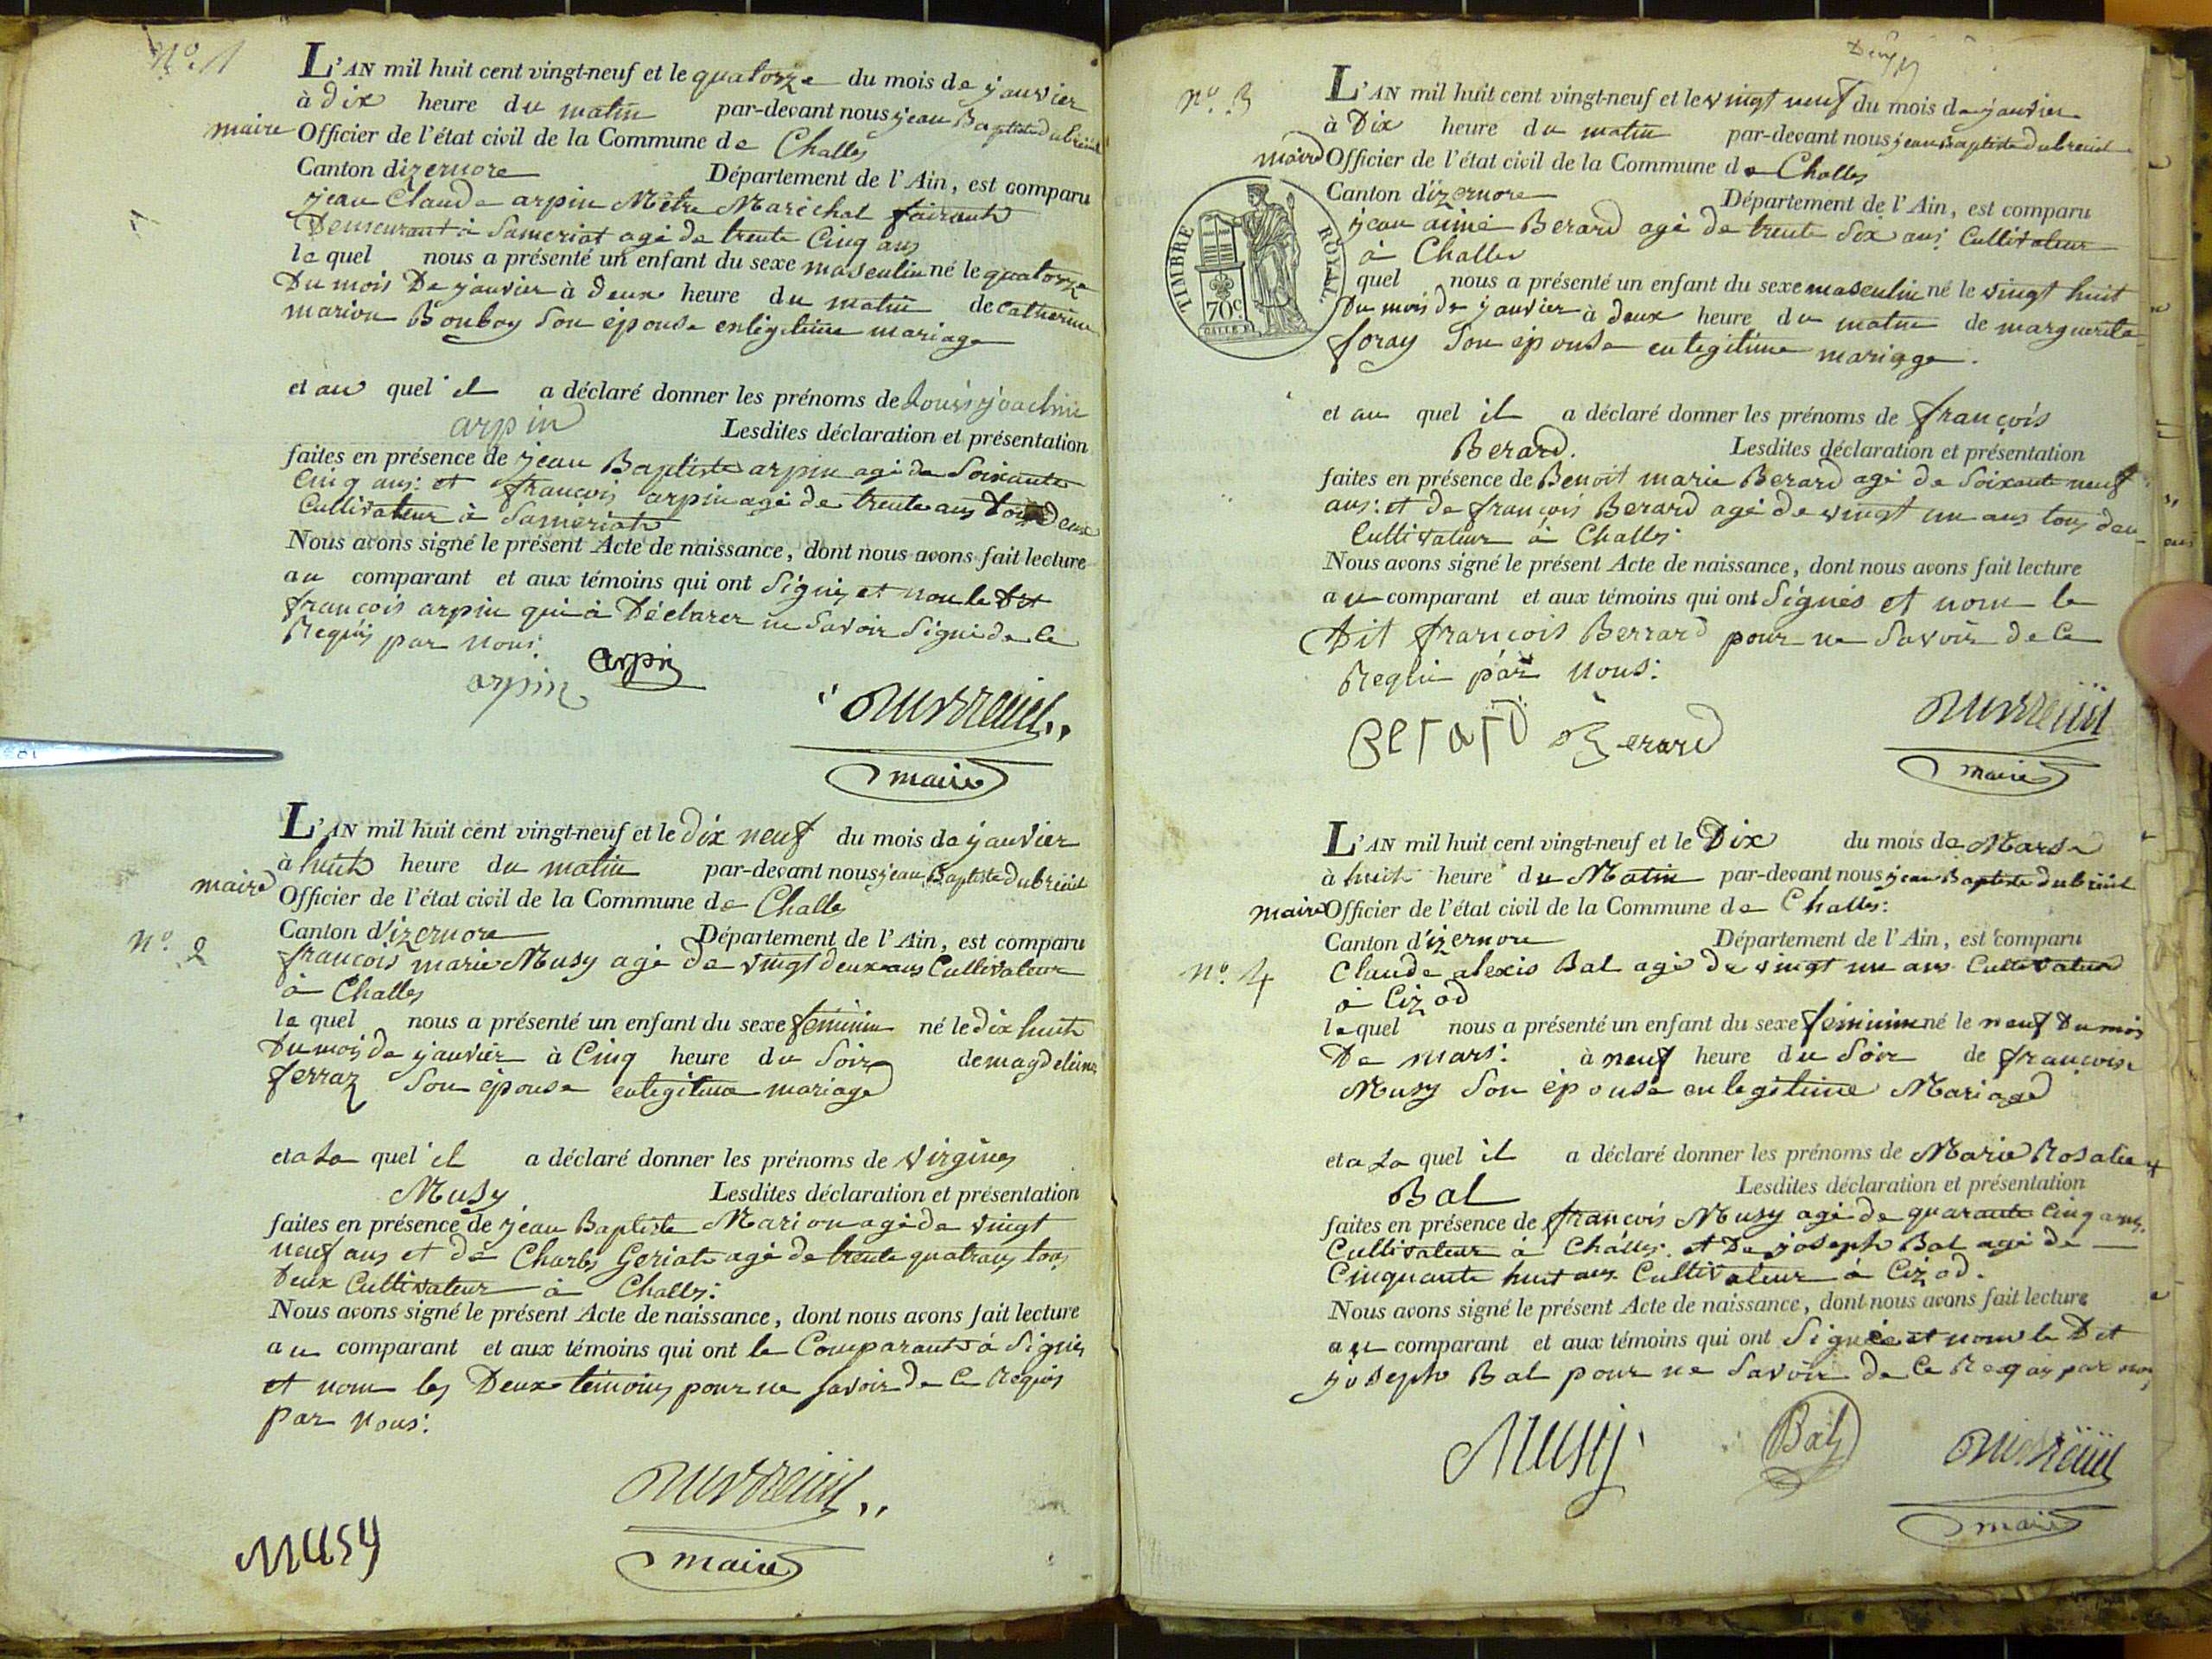 N.o 1
L'AN mil huit cent vingt-neuf et le quatorze du mois de janvier
à dix heure du matin par-devant nous jean Baptiste dubreüil
maire Officier de l'état civil de la Commune de Challes
Canton dizernore Département de l'Ain, est comparu
jean Claude arpin Mètre Marichal
Demeurant à Sameriat agé de trente Cinq ans
le quel nous a présenté un enfant du sexe masculin né le quatorze
Du mois De janvier à deux heure du matin de catherine
marion Bonboy Son épouse enlégitime mariage
et au quel il a déclaré donner les prénoms de Louis joachin
arpin Lesdites déclaration et présentation
faites en présence de jean Baptiste arpin agé de Soixante
Cinq ans: et françois arpin agé de trente ans tous deux
Cultivateur à Samériat
Nous avons signé le présent Acte de naissance, dont nous avons fait lecture
au comparant et aux témoins qui ont Signés et non le Dit
françois arpin qui à Déclarer ne Savoir Signé de le
Requis par nous:
arpin
arpin
Dubreüil
maire
L'AN mil huit cent vingt-neuf et le dix neuf du mois de janvier
à huit heure du matin par-devant nous jean Baptiste dubreüil
maire Officier de l'état civil de la Commune de Challes
N.o 2 Canton d'izernore Département de l'Ain, est comparu
françois marie Musy agé de vingt deux ans Cultivateur
à Challes
le quel nous a présenté un enfant du sexe féminin né le dix huit
Du mois de janvier à Cinq heure du Soir de magdeleine
ferraz Son épouse enlegitime mariage
et a La quel il a déclaré donner les prénoms de virgines
Musy Lesdites déclaration et présentation
faites en présence de jean Baptiste Marion agé de vingt
neuf ans et de Charles Geriat agé de trente quatrans tous
Deux Cultivateur à Challes:
Nous avons signé le présent Acte de naissance, dont nous avons fait lecture
au comparant et aux témoins qui ont le Comparant à Signés
et nom les Deux témoins pour ne savoir de Ce Requis
par nous:
Dubreüil
maire
MUSY
N.o 3
L'AN mil huit cent vingt-neuf et le vingt neuf du mois de janvier
à Dix heure du matin par-devant nous jean Baptiste dubreüil
maire Officier de l'état civil de la Commune de Challes
Canton d'izernore Département de l'Ain, est comparu
jean aimé Berard agé de trente Six ans Cultivateur
à Challes
quel nous a présenté un enfant du sexe masculin né le vingt huit
Du mois de janvier à deux heure du matin de marguerite
foray Son épouse en legitime mariage.
TIMBRE ROYAL
70c
et au quel il a déclaré donner les prénoms de françois
Berard. Lesdites déclaration et présentation
faites en présence de Benoit marie Berard agé de Soixante neuf
ans: et de françois Berard agé de vingt un ans tous deu
Cultivateur à Challes
Nous avons signé le présent Acte de naissance, dont nous avons fait lecture
au comparant et aux témoins qui ont Signés et nom le
Dit françois Berrard pour ne Savoir de Ce
Requi par nous:
Berard Berard
Dubreüil
maire
L'AN mil huit cent vingt-neuf et le Dix du mois de Mars
à huit heure du Matin par-devant nous jean Baptiste dubreüil
maire Officier de l'état civil de la Commune de Challes:
Canton d'izernore Département de l'Ain, est comparu
N.o 4 Claude alexis Bal agé de vingt un ans Cultivateur
à Cizod
le quel nous a présenté un enfant du sexe féminin né le neuf Du mois
De mars: à neuf heure du Soir de françoise
Musy Son épouse en legitime Mariage
et a La quel il a déclaré donner les prénoms de Marie Rosalie
Bal Lesdites déclaration et présentation
faites en présence de françois Musy agé de quarante Cinq ans.
Cultivateur à Challes. et De joseph Bal agé de
Cinquante huit ans Cultivateur à Cizod.
Nous avons signé le présent Acte de naissance, dont nous avons fait lecture
au comparant et aux témoins qui ont Signée et nom le Dit
joseph Bal pour ne Savoir de Ce Requis par nous
Musy
Bal
Dubreüil
maire